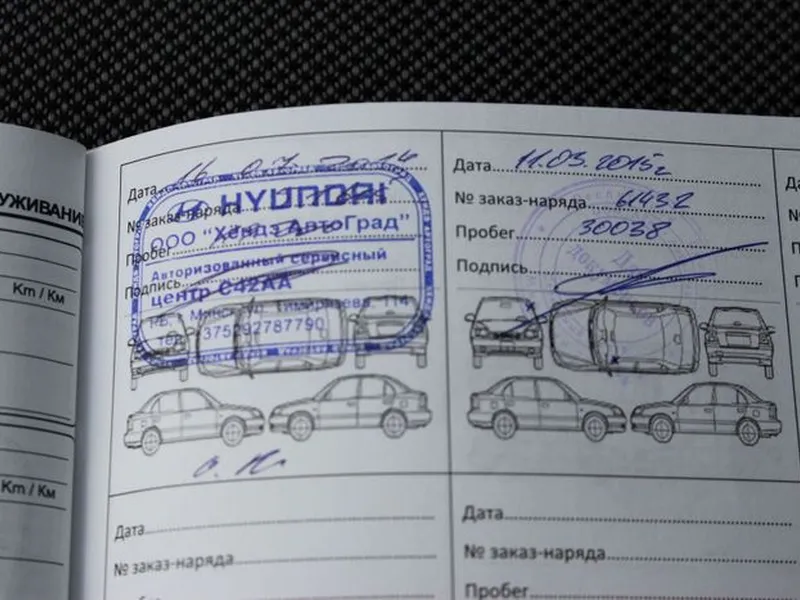 УЖИВАНИЕ
Km / Км
Km / Км
Дата 16 07 2014
№ заказ-наряда
Пробег
Подпись
HYUNDAI
ООО "Хендэ АвтоГрад"
Авторизованный сервисный
центр C42AA
РБ, г. Минск, ул. Тимирязева, 114
тел. 375292787790
Дата 11.03.2015г
№ заказ-наряда 61432
Пробег 30038
Подпись
Дата
№ заказ-наряда
Дата
№ заказ-наряда
Пробег